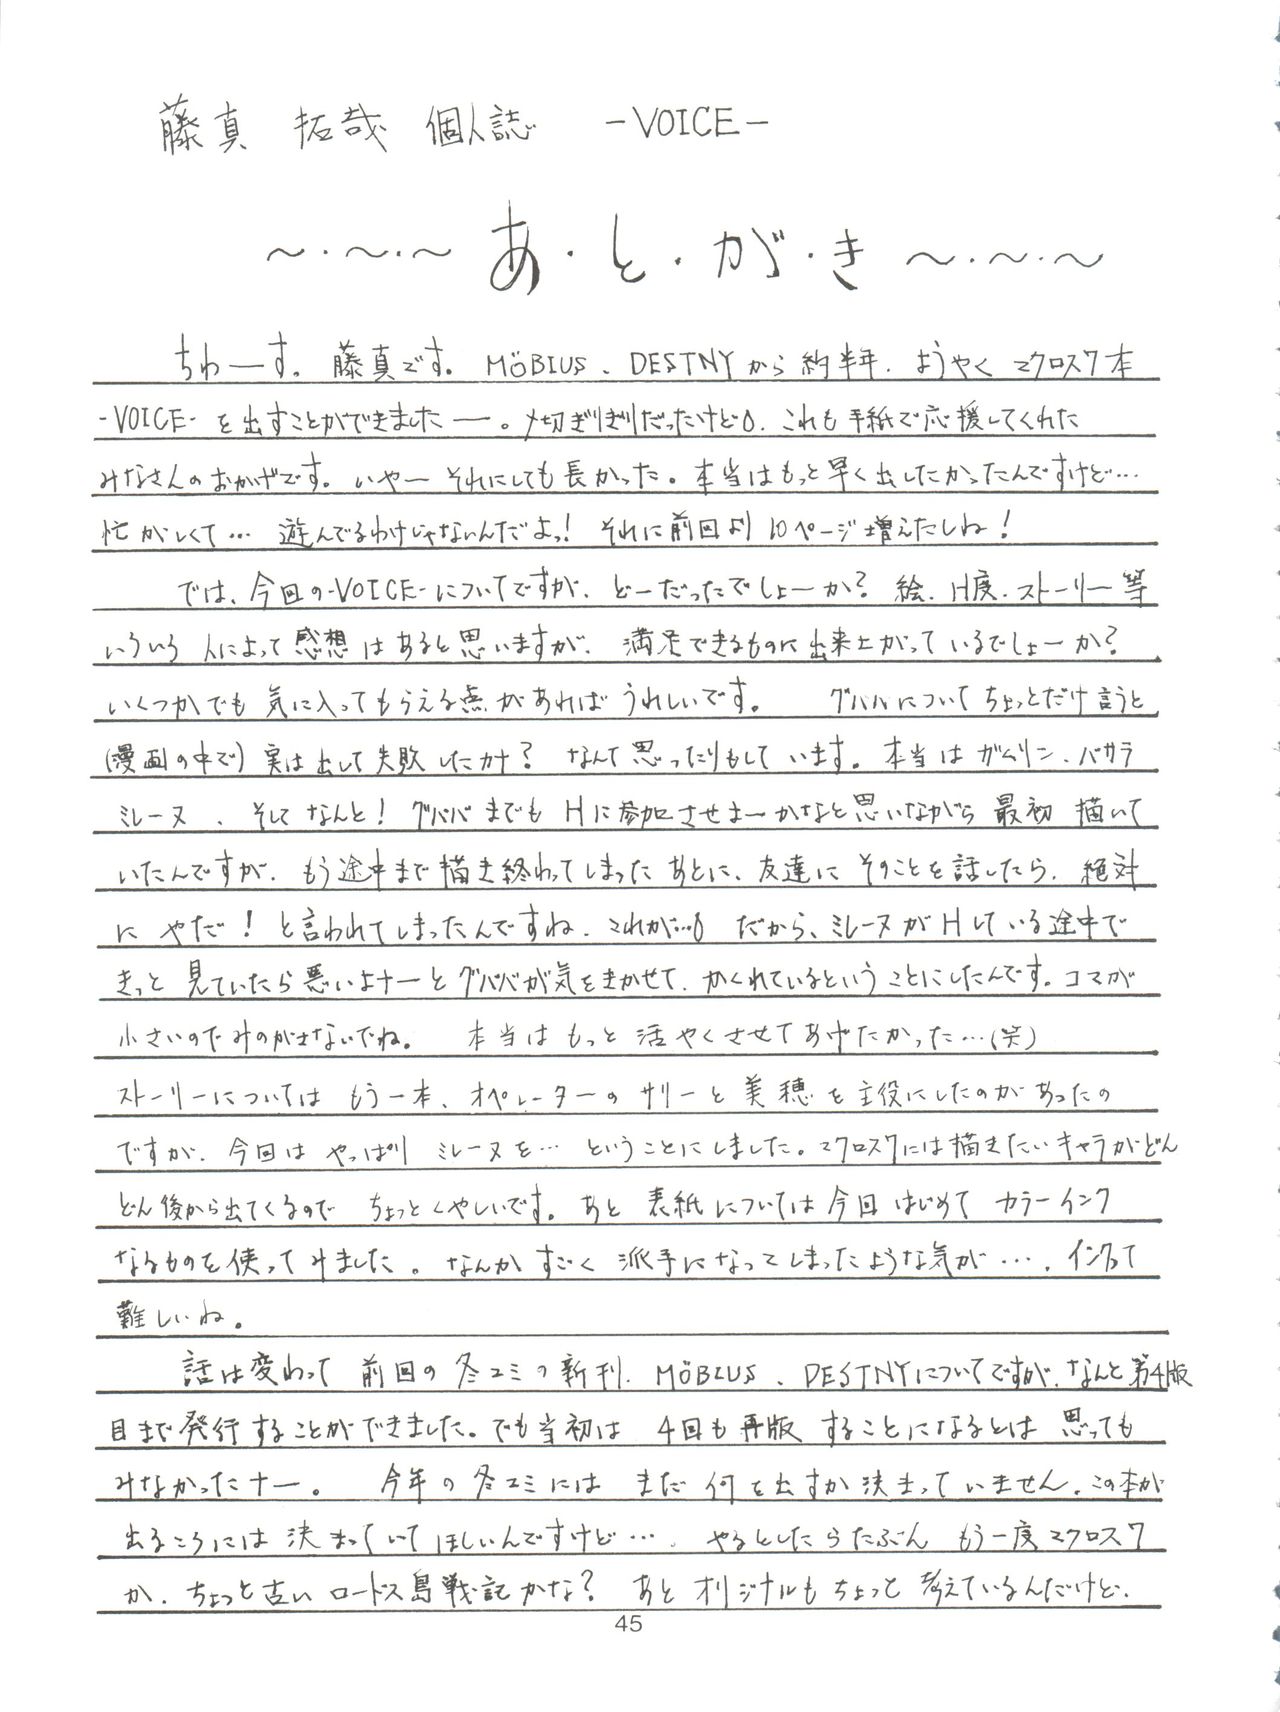 藤真 拓哉 個人誌 -VOICE-
～・～・～ あ・と・が・き ～・～・～
ちわーーす。藤真です。MÖBIUS、DESTNYから約半年、ようやくマクロス7本
-VOICE-を出すことができましたーー。〆切ぎりぎりだったけど。これも手紙で応援してくれた
みなさんのおかげです。いやー それにしても長かった。本当はもっと早く出したかったんですけど…
忙がしくて… 遊んでるわけじゃないんだよっ! それに前回より10ページ増えたしね!
では、今回の-VOICE-についてですが、どーだったでしょーか? 絵、H度、ストーリー等
いろいろ 人によって感想はあると思いますが、満足できるものに出来上がっているでしょーか?
いくつかでも 気に入ってもらえる点があればうれしいです。 グババについてちょっとだけ言うと
(漫画の中で) 実は出して失敗したカナ? なんて思ったりもしています。本当はガムリン、バサラ
ミレーヌ、そしてなんと! グババまでも Hに参加させよーかなと思いながら最初 描いて
いたんですが、もう途中まで描き終わってしまったあとに、友達に そのことを話したら、絶対
に やだ! と言われてしまったんですね、これが… だから、ミレーヌがHしている途中で
きっと 見ていたら悪いよナーとグババが気をきかせて、かくれているということにしたんです。コマが
小さいのでみのがさないでね。 本当はもっと活やくさせてあげたかった…(笑)
ストーリーについては もう一本、オペレーターのサリーと美穂を主役にしたのがあったの
ですが、今回は やっぱり ミレーヌを… ということにしました。マクロス7には描きたいキャラがどん
どん後から出てくるので ちょっとくやしいです。あと 表紙については今回はじめて カラーインク
なるものを使ってみました。なんか すごく 派手になってしまったような気が…。インクって
難しいね。
話は変わって 前回の冬コミの新刊、MÖBIUS、DESTNYについてですが、なんと第4版
目まで発行することができました。でも当初は 4回も再版 することになるとは 思っても
みなかったナー。 今年の冬コミには まだ 何を出すか決まっていません。この本が
出るころには 決まっていてほしいんですけど…。 やるとしたらたぶん もう一度マクロス7
か、ちょっと古い ロードス島戦記かな? あと オリジナルもちょっと 考えているんだけど、
45